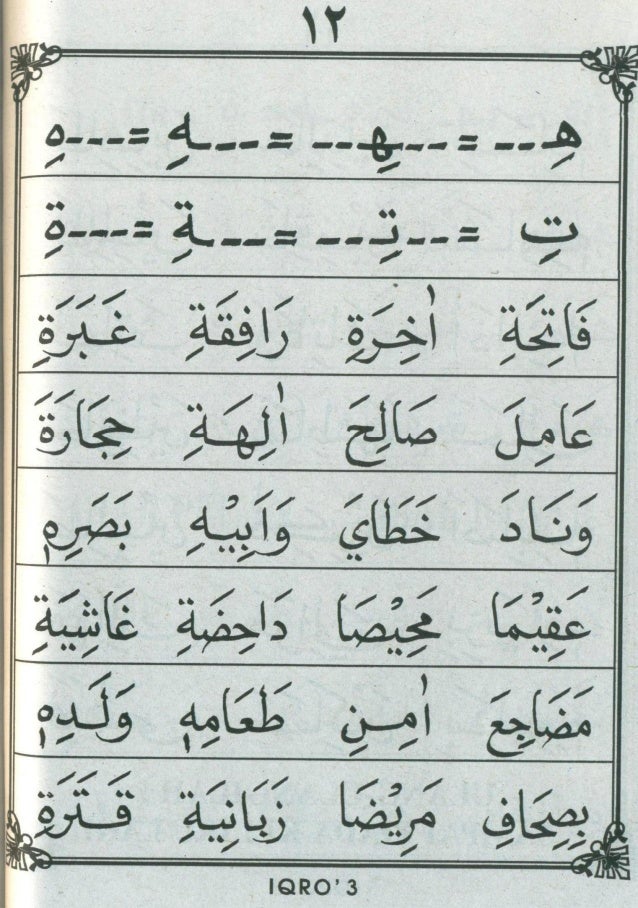 ١٢
هِـ--- = ---ـهِـ--- = ---ـهِ = ---هِ
تِ = ---تِـ--- = ---ـةِ = ---ةِ
فَاتِحَةِ اٰخِرَةِ رَافِقَةِ غَبَرَةِ
عَامِلَ صَالِحَ اٰلِهَةِ حِجَارَةَ
وَنَادَ خَطَايَ وَاَبِيْهِ بَصَرِهٖ
عَقِيْمَا مَحِيْصَا دَاحِضَةِ غَاشِيَةِ
مَضَاجِعَ اٰمِنِ طَعَامِهٖ وَلَدِهٖ
بِصِحَافِ مَرِيْضَا زَبَانِيَةِ قَتَرَةِ
IQRO'3